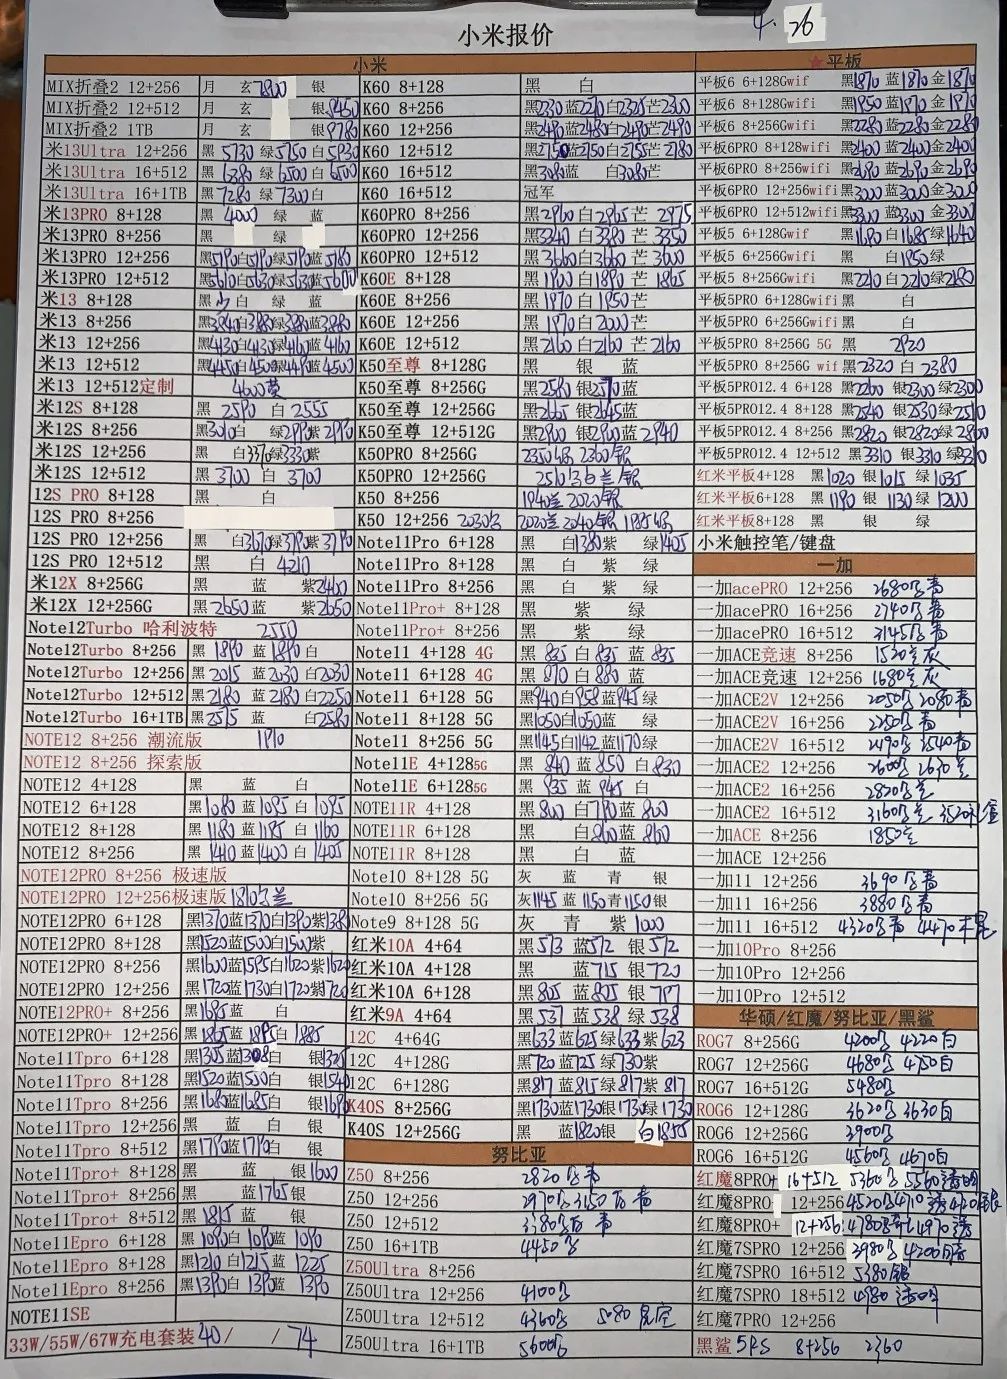 4. 26
小米报价
小米
MIX折叠2 12+256 月 玄7800 银
MIX折叠2 12+512 月 玄 银8450
MIX折叠2 1TB 月 玄 银9780
米13Ultra 12+256 黑5730 绿5750 白5930
米13Ultra 16+512 黑6380 绿6500 白6500
米13Ultra 16+1TB 黑7280 绿7300白
米13PRO 8+128 黑4000 绿 蓝
米13PRO 8+256 黑 绿
米13PRO 12+256 黑5190白5190绿5190蓝5180
米13PRO 12+512 黑5610白5630绿5630蓝5600
米13 8+128 黑 白 绿 蓝
米13 8+256 黑3840白3880绿3880蓝3880
米13 12+256 黑4130白4130绿4160蓝4160
米13 12+512 黑4450白4500绿4490蓝4500
米13 12+512定制 4600
米12S 8+128 黑2590 白2555
米12S 8+256 黑3010白 绿2990紫2990
米12S 12+256 黑 白3370绿3330紫
米12S 12+512 黑3700 白3700
12S PRO 8+128 黑 白
12S PRO 8+256
12S PRO 12+256 黑 白3670绿3790紫3790
12S PRO 12+512 黑 白4210
米12X 8+256G 黑 蓝 紫2400
米12X 12+256G 黑2650蓝 紫2650
Note12Turbo 哈利波特 2550
Note12Turbo 8+256 黑1890 蓝1890白
Note12Turbo 12+256 黑2015 蓝2030白2030
Note12Turbo 12+512 黑2180 蓝2180白2250
Note12Turbo 16+1TB 黑2515 蓝 白2580
NOTE12 8+256 潮流版 1190
NOTE12 8+256 探索版
NOTE12 4+128 黑 蓝 白
NOTE12 6+128 黑1080 蓝1095 白1095
NOTE12 8+128 黑1180 蓝1185 白1160
NOTE12 8+256 黑1410 蓝1400 白1405
NOTE12PRO 8+256极速版
NOTE12PRO 12+256极速版 1810
NOTE12PRO 6+128 黑1370蓝1370白1390紫1380
NOTE12PRO 8+128 黑1520蓝1500白1500紫
NOTE12PRO 8+256 黑1600蓝1595白1620紫1620
NOTE12PRO 12+256 黑1720蓝1730白1720紫1720
NOTE12PRO+ 8+256 黑1695蓝 白
NOTE12PRO+ 12+256 黑1865蓝1895白1885
Note11Tpro 6+128 黑1305蓝1308白 银1325
Note11Tpro 8+128 黑1520蓝1550白 银1540
Note11Tpro 8+256 黑1680蓝1685白 银1690
Note11Tpro 12+256 黑 蓝 白 银
Note11Tpro 8+512 黑1780蓝1790白 银
Note11Tpro+ 8+128 黑 蓝 银1600
Note11Tpro+ 8+256 黑 蓝1765银
Note11Tpro+ 8+512 黑1815 蓝 银
Note11Epro 6+128 黑1090白1090蓝1090
Note11Epro 8+128 黑1210白1215蓝1225
Note11Epro 8+256 黑1390白1390蓝1390
NOTE11SE
33W/55W/67W充电套装 40/ / 74
K60 8+128 黑 白
K60 8+256 黑2330蓝2270白2325芒2300
K60 12+256 黑2490蓝2480白2490芒2490
K60 12+512 黑2750蓝2750白2755芒2780
K60 16+512 黑3080蓝 白3080芒
K60 16+512 冠军
K60PRO 8+256 黑2960白2965芒2975
K60PRO 12+256 黑3340白3380芒3350
K60PRO 12+512 黑3660白3660芒3600
K60E 8+128 黑1900白1890芒1865
K60E 8+256 黑1970白1950芒
K60E 12+256 黑1970白2000芒
K60E 12+512 黑2160白2160芒2160
K50至尊 8+128G 黑 银 蓝
K50至尊 8+256G 黑2580银2570蓝
K50至尊 12+256G 黑2665银2645蓝
K50至尊 12+512G 黑2900银2900蓝2940
K50PRO 8+256G 2350 2360银
K50PRO 12+256G 2510
K50 8+256 1940兰 2020银
K50 12+256 2030 2020兰 2040银 1985绿
Note11Pro 6+128 黑 白1380紫 绿1405
Note11Pro 8+128 黑 白 紫 绿
Note11Pro 8+256 黑 白 紫 绿
Note11Pro+ 8+128 黑 紫 绿
Note11Pro+ 8+256 黑 紫 绿
Note11 4+128 4G 黑825 白835 蓝835
Note11 6+128 4G 黑870 白880 蓝
Note11 6+128 5G 黑940白958蓝945绿
Note11 8+128 5G 黑1050白1050蓝 绿
Note11 8+256 5G 黑1145白1142蓝1170绿
Note11E 4+128 5G 黑840 蓝850 白830
Note11E 6+128 5G 黑935 蓝945 白
NOTE11R 4+128 黑800 白790蓝800
NOTE11R 6+128 黑 白860蓝860
NOTE11R 8+128 黑 白 蓝
Note10 8+128 5G 灰 蓝 青 银
Note10 8+256 5G 灰1145蓝1150青1150银
Note9 8+128 5G 灰 青 紫1000
红米10A 4+64 黑573 蓝572 银572
红米10A 4+128 黑 蓝715 银720
红米10A 6+128 黑805 蓝805 银797
红米9A 4+64 黑537 蓝538 绿538
12C 4+64G 黑633蓝625绿633紫623
12C 4+128G 黑720蓝725绿730紫
12C 6+128G 黑817蓝815绿817紫817
K40S 8+256G 黑1730蓝1730银1730绿1730
K40S 12+256G 黑 蓝1820银 白1855
努比亚
Z50 8+256 2820
Z50 12+256 2970 3150
Z50 12+512 3380
Z50 16+1TB 4450
Z50Ultra 8+256
Z50Ultra 12+256 4100
Z50Ultra 12+512 4360 5080星空
Z50Ultra 16+1TB 5600
★平板
平板6 6+128Gwif 黑1870 蓝1870 金1870
平板6 8+128Gwifi 黑1950 蓝1970 金1970
平板6 8+256Gwifi 黑2280 蓝2280 金2280
平板6PRO 8+128wifi 黑2400 蓝2400 金2400
平板6PRO 8+256wifi 黑2690 蓝2690 金2690
平板6PRO 12+256wifi 黑3000 蓝3000 金3000
平板6PRO 12+512wifi 黑3300 蓝3300 金3300
平板5 6+128Gwif 黑1690 白1685绿1640
平板5 6+256Gwifi 黑 白1950绿
平板5 8+256Gwifi 黑2210 白2210绿2180
平板5PRO 6+128Gwifi 黑 白
平板5PRO 6+256Gwifi 黑 白
平板5PRO 8+256G 5G 黑 2920
平板5PRO 8+256G wif 黑2320 白2380
平板5PRO12.4 6+128 黑2260 银2300绿2300
平板5PRO12.4 8+128 黑2540 银2530绿2510
平板5PRO12.4 8+256 黑2820 银2820绿2800
平板5PRO12.4 12+512 黑3310 银3310 绿3310
红米平板4+128 黑1020 银1015 绿1035
红米平板6+128 黑1190 银1130 绿1200
红米平板8+128 黑 银 绿
小米触控笔/键盘
一加
一加acePRO 12+256 2680 青
一加acePRO 16+256 2740 青
一加acePRO 16+512 3145 青
一加ACE竞速 8+256 1520 灰
一加ACE竞速 12+256 1680 灰
一加ACE2V 12+256 2050 2080青
一加ACE2V 16+256 2250 青
一加ACE2V 16+512 2490 2540青
一加ACE2 12+256 2600 2630兰
一加ACE2 16+256 2820 兰
一加ACE2 16+512 3160 兰 3520礼盒
一加ACE 8+256 1850
一加ACE 12+256
一加11 12+256 3690 青
一加11 16+256 3880 青
一加11 16+512 4320 青 4470木星
一加10Pro 8+256
一加10Pro 12+256
一加10Pro 12+512
华硕/红魔/努比亚/黑鲨
ROG7 8+256G 4200 4220白
ROG7 12+256G 4680 4750白
ROG7 16+512G 5480
ROG6 12+128G 3620 3630白
ROG6 12+256G 3900
ROG6 16+512G 4560 4670白
红魔8PRO+ 16+512 5360 5560透明
红魔8PRO 12+256 4520
红魔8PRO+ 12+256 4780 4970透
红魔7SPRO 12+256 3980 4200
红魔7SPRO 16+512 5380银
红魔7SPRO 18+512 4980透明
红魔7PRO 12+256
黑鲨 5RS 8+256 2360